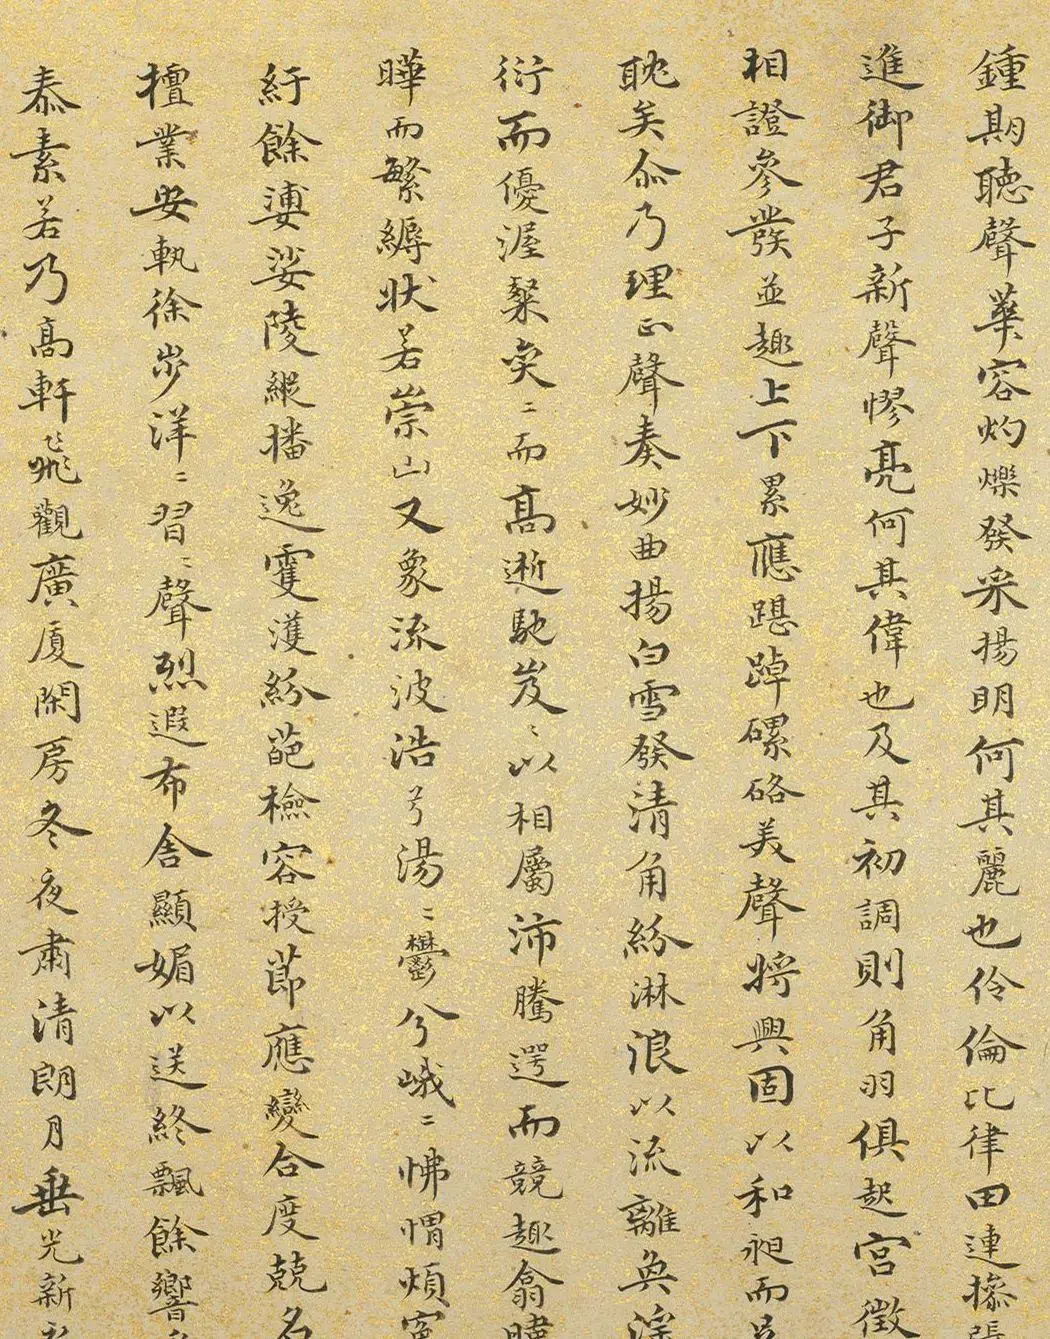 鍾期聽聲華容灼爍發采揚明何其麗也伶倫比律田連操張
進御君子新聲憀亮何其偉也及其初調則角羽俱起宮徵
相證參發並趣上下累應踸踔磥硌美聲將興固以和昶而足
耽矣尒乃理正聲奏妙曲揚白雪發清角紛淋浪以流離奐淫
衍而優渥粲奕〻而髙逝馳岌〻以相屬沛騰遌而競趣翕暐
曄而繁縟狀若崇山又象流波浩兮湯〻鬱兮峨〻怫愲煩寃
紆餘婆娑陵縱播逸霍濩紛葩檢容授節應變合度兢名
擅業安軌徐步洋〻習〻聲烈遐布含顯媚以送終飄餘響乎
泰素若乃髙軒飛觀廣厦閑房冬夜肅清朗月垂光新